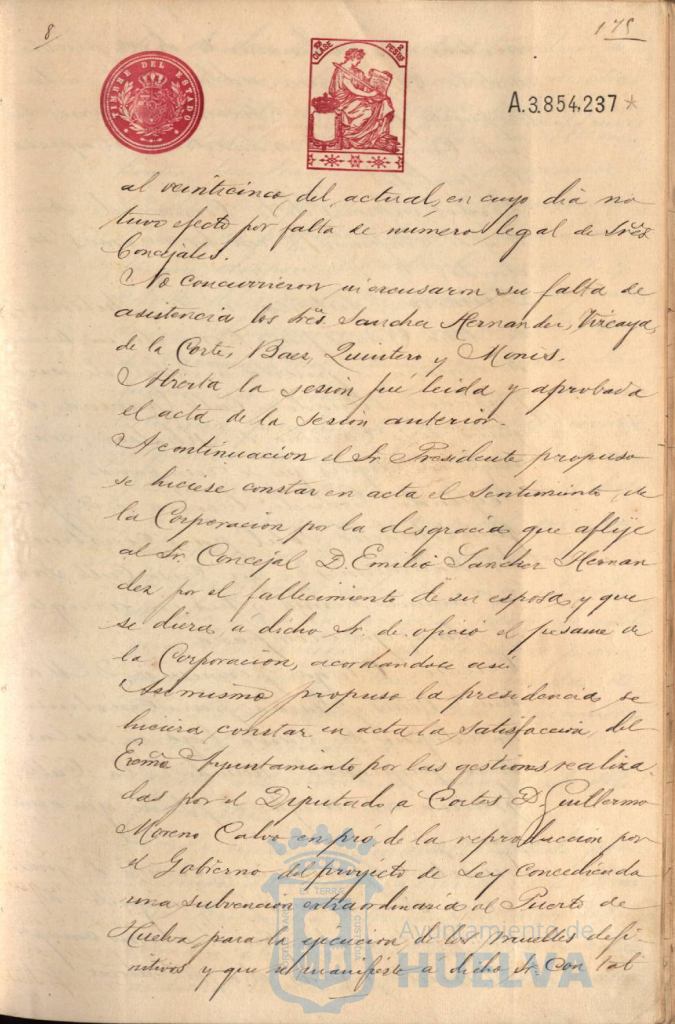 8
175
TIMBRE DEL ESTADO
CLASE
PESETAS
A.3.854,237 *
al veinticinco, del actual, en cuyo dia no
tuvo efecto por falta de número legal de Sres.
Concejales.
No concurrieron ni excusaron su falta de
asistencia los Sres. Sanchez Hernandez, Vizcaya,
de la Corte, Baez, Quintero y Monis.
Abierta la sesión fué leida y aprobada
el acta de la sesión anterior.
A continuación el Sr. Presidente propuso
se hiciese constar en acta el sentimiento de
la Corporación por la desgracia que aflije
al Sr. Concejal D. Emilio Sanchez Hernan
dez por el fallecimiento de su esposa, y que
se diera a dicho Sr. de oficio el pésame de
la Corporación, acordandose asi.
Asi mismo propuso la presidencia se
hiciera constar en acta la satisfacción del
Excmo Ayuntamiento por las gestiones realiza-
das por el Diputado a Cortes D. Guillermo
Moreno Calvo en pró de la reproducción por
el Gobierno del proyecto de Ley concediendo
una subvención extraordinaria al Puerto de
Huelva para la ejecución de los muelles defi-
nitivos y que se manifieste a dicho Sr. con tal
Ayuntamiento de
HUELVA